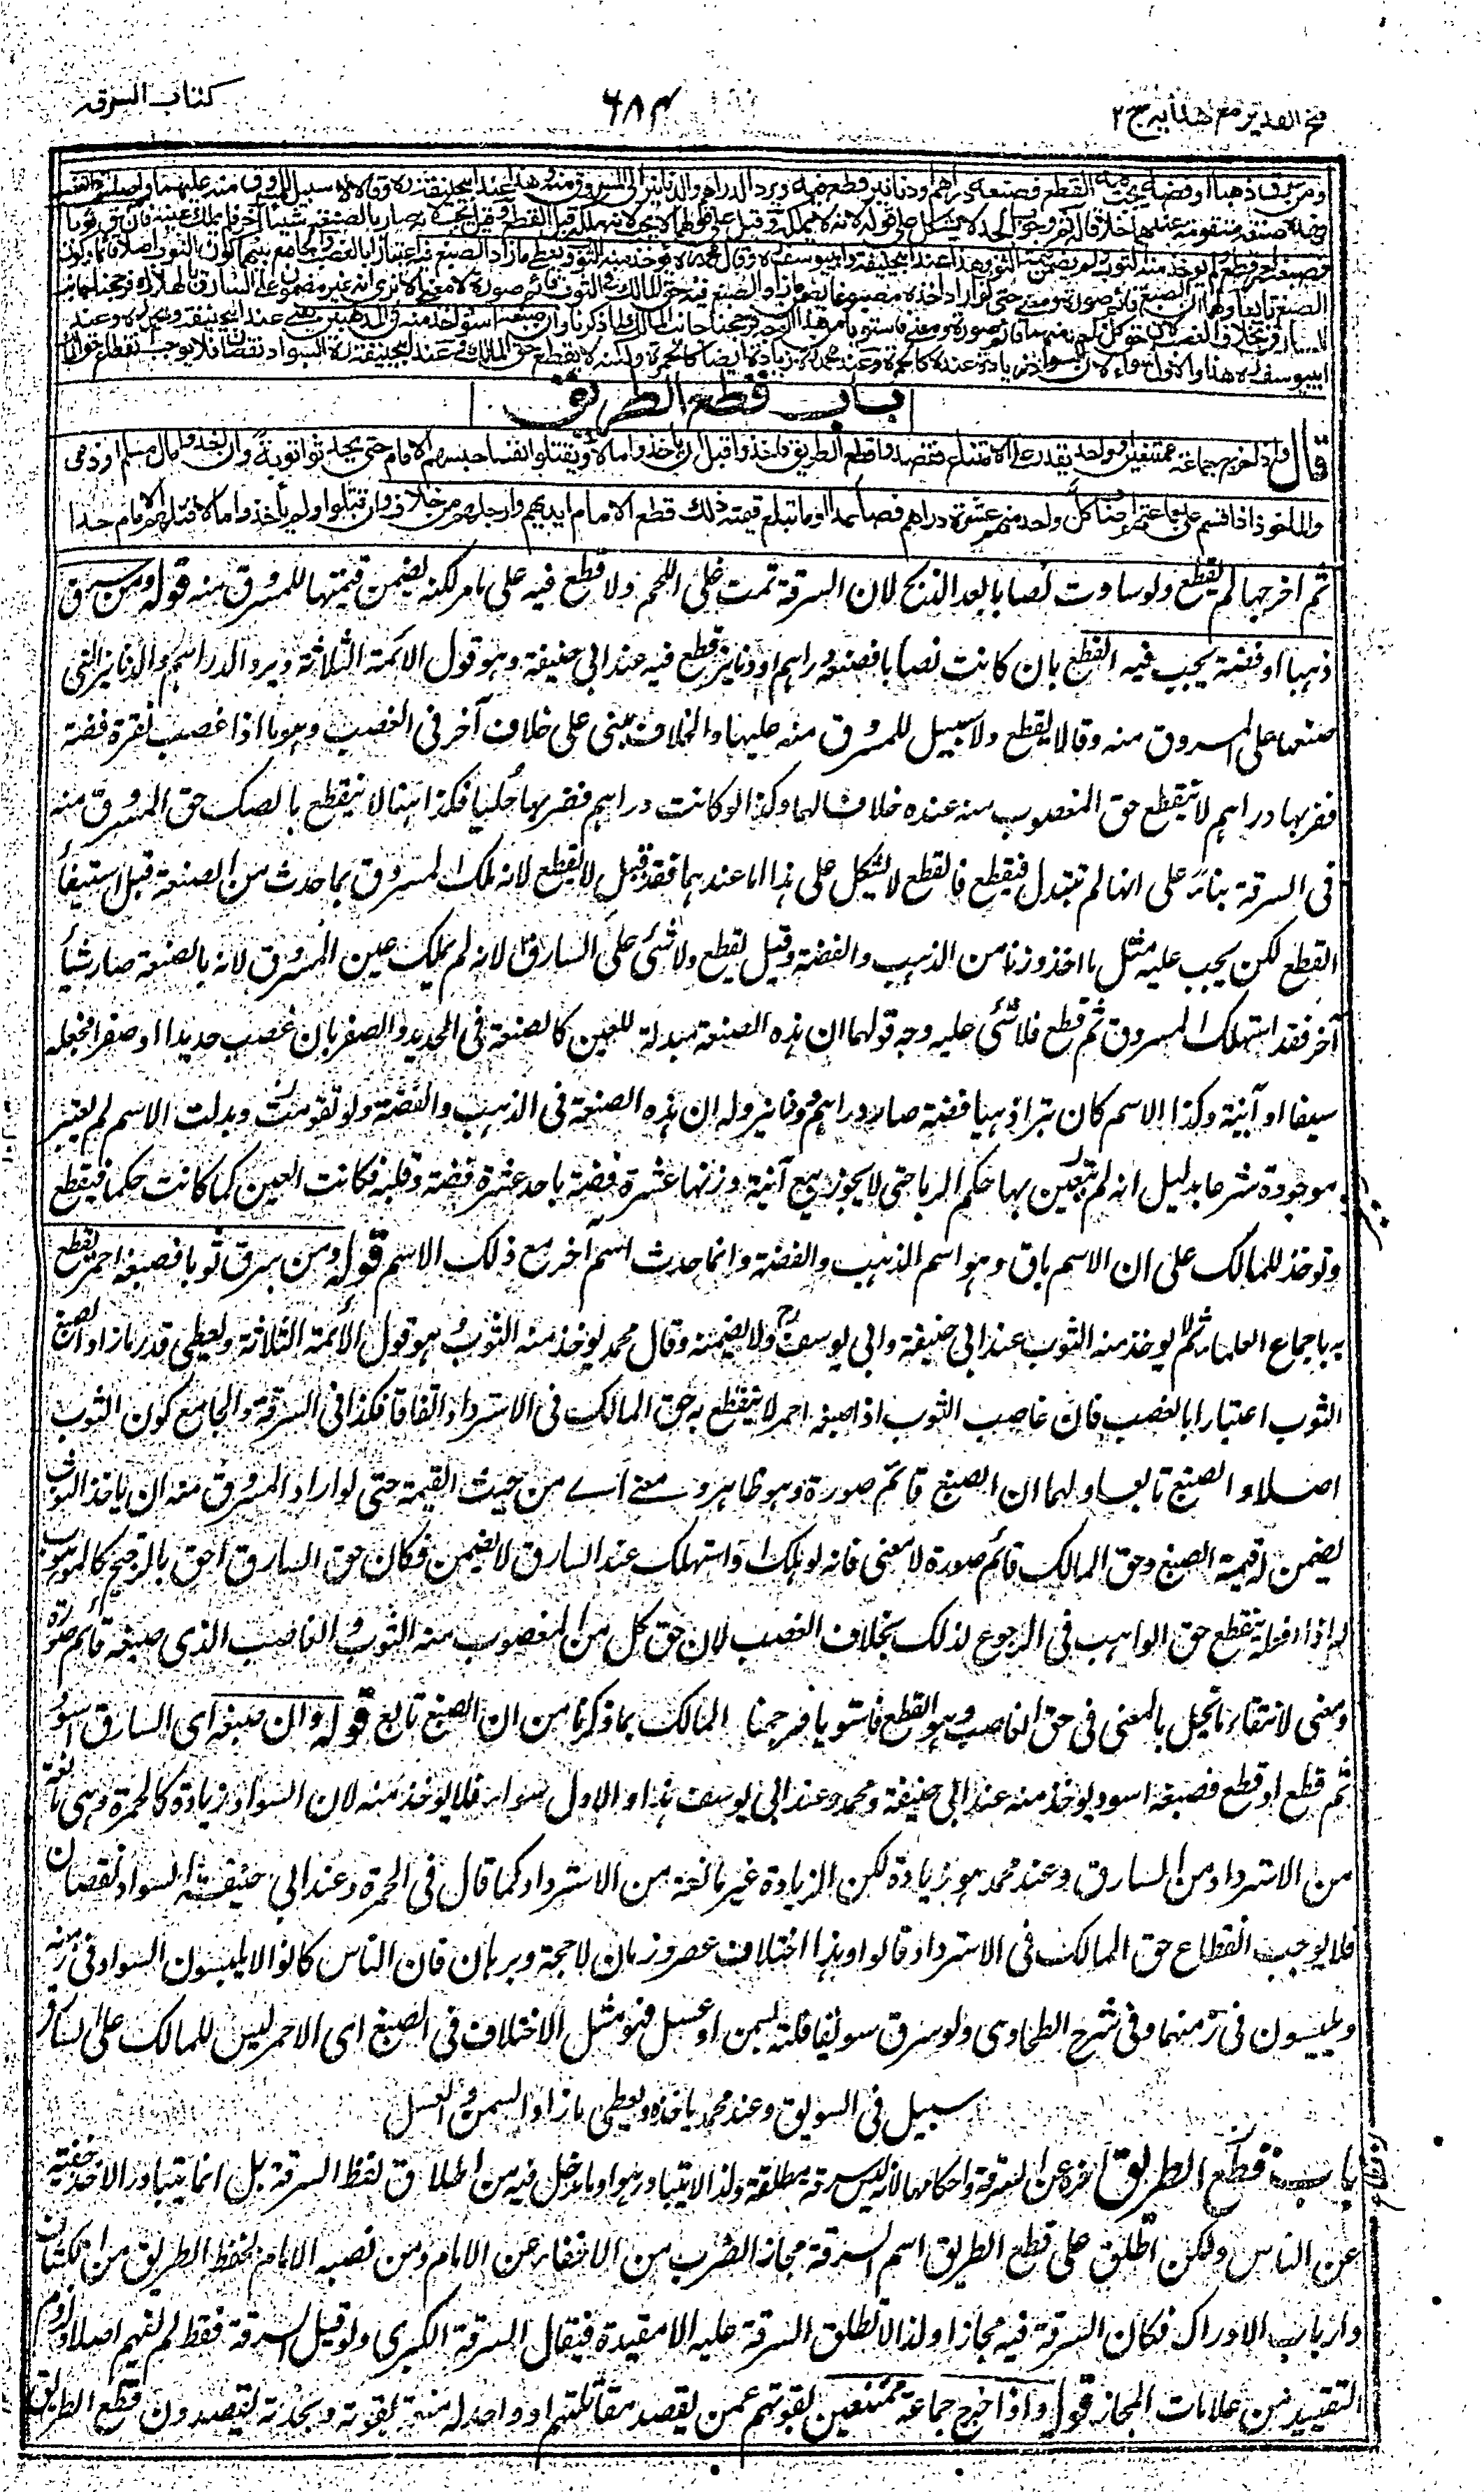 فتح القدير مع هدايه ج ٢
٦٨٣
كتاب السرقه
ومن سرق ذهبا او فضة يجب فيه القطع فصنعه دراهم او دنانير قطع فيه ويرد الدراهم والدنانير الى المسروق منه وهذا عند ابيحنيفة ره وقالا لا سبيل للمسروق منه عليهما واصله فى الغصب
فهذه صنعة متقومة عندهما خلافا له ثم وجوب الحد لا يشكل على قوله لانه لا يملكه وقيل على قولهما لا يجب لانه ملكه قبل القطع وقيل يجب لانه صار بالصنعة شيئا آخر فلم يملك عينه فان سرق ثوبا
فصبغه احمر قطع لم يوخذ منه الثوب ولم يضمن قيمة الثوب وهذا عند ابيحنيفة وابيوسف ره وقال محمد ره يؤخذ منه الثوب ويعطى ما زاد الصبغ فيه اعتبارا بالغصب والجامع بينهما كون الثوب اصلا قائما وكون
الصبغ تابعا ولهما ان الصبغ قائم صورة ومعنى حتى لو اراد اخذه مصبوغا يضمن ما زاد الصبغ فيه وحق المالك فى الثوب قائم صورة لا معنى الا ترى انه غير مضمون على السارق بالهلاك فرجحنا جانب
السارق بخلاف الغصب لان حق كل واحد منهما قائم صورة ومعنى فاستويا من هذا الوجه فرجحنا جانب المالك لما ذكرنا وان صبغه اسود اخذ منه فى المذهبين يعنى عند ابيحنيفة ومحمد ره وعند
ابيوسف ره هذا والاول سواء لان السواد زيادة عنده كالحمرة وعند محمد ره زيادة ايضا كالحمرة ولكنه لا يقطع حق المالك وعند ابيحنيفة ره السواد نقصان فلا يوجب انقطاع حق المالك
باب قطع الطريق
قال واذا خرج جماعة ممتنعين او واحد يقدر على الامتناع فقصدوا قطع الطريق فاخذوا قبل ان ياخذوا مالا ويقتلوا نفسا حبسهم الامام حتى يحدثوا توبة وان اخذوا مال مسلم او ذمى
والماخوذ اذا قسم على جماعتهم اصاب كل واحد منهم عشرة دراهم فصاعدا او ما تبلغ قيمته ذلك قطع الامام ايديهم وارجلهم من خلاف وان قتلوا ولم ياخذوا مالا قتلهم الامام حدا
ثم اخرجها لم يقطع ولو ساوت نصابا بعد الذبح لان السرقة تمت على اللحم ولا قطع فيه على ما مر لكنه يضمن قيمتها للمسروق منه قوله ومن سرق
ذهبا او فضة يجب فيه القطع بان كانت نصابا فصنعه دراهم او دنانير قطع فيه عند ابى حنيفة وهو قول الائمة الثلاثة ويرد الدراهم والدنانير التى
صنعها على المسروق منه وقالا يقطع ولا سبيل للمسروق منه عليها والخلاف مبنى على خلاف آخر فى الغصب وهو ما اذا غصب نقرة فضة
فضربها دراهم لا ينقطع حق المغصوب منه عنده خلافا لهما وكذا لو كانت دراهم فضربها حليا فكذا هنا لا ينقطع بالصك حق المسروق منه
فى السرقة بناء على انها لم تتبدل فيقطع فالقطع لا يشكل على هذا اما عندهما فقد قيل لا يقطع لانه ملك المسروق بما حدث من الصنعة قبل استيفاء
القطع لكن يجب عليه مثل ما اخذ وزنا من الذهب والفضة وقيل يقطع ولا شئ على السارق لانه لم يملك عين المسروق لانه بالصنعة صار شيئا
آخر فقد استهلك المسروق ثم قطع فلا شئ عليه وجه قولهما ان هذه الصنعة مبدلة للعين كالصنعة فى الحديد والصفر بان غصب حديدا او صفرا فجعله
سيفا او آنية وكذا الاسم كان تبرا ذهبا فضة صار دراهم ودنانير وله ان هذه الصنعة فى الذهب والفضة ولو تقومت وبدلت الاسم لم تعتبر
موجودة شرعا بدليل انه لم يتعين بها حكم الربا حتى لا يجوز بيع آنية وزنها عشرة فضة باحد عشرة فضة وقلبه فكانت العين كما كانت حكما فيقطع
وتوخذ للمالك على ان الاسم باق وهو اسم الذهب والفضة وانما حدث اسم آخر مع ذلك الاسم قوله ومن سرق ثوبا فصبغه احمر يقطع
به باجماع العلماء ثم لا يوخذ منه الثوب عند ابى حنيفة وابى يوسف رح ولا يضمنه وقال محمد يوخذ منه الثوب وهو قول الائمة الثلاثة ويعطى قدر ما زاد الصبغ
الثوب اعتبارا بالغصب فان غاصب الثوب اذا صبغه احمر لا ينقطع به حق المالك فى الاسترداد اتفاقا فكذا فى السرقة والجامع كون الثوب
اصلا والصبغ تابعا ولهما ان الصبغ قائم صورة وهو ظاهر ومعنى اے من حيث القيمة حتى لو اراد المسروق منه ان ياخذ الثوب
يضمن له قيمة الصبغ وحق المالك قائم صورة لا معنى فانه لو هلك او استهلك عند السارق لا يضمن فكان حق السارق احق بالترجيح كالموهوب
له اذا فعله ينقطع حق الواهب فى الرجوع لذلك بخلاف الغصب لان حق كل من المغصوب منه الثوب والغاصب الذى صبغه قائم صورة
ومعنى لانتفاء ما يخل بالمعنى فى حق الغاصب وهو القطع فاستويا فرجحنا المالك بما ذكرنا من ان الصبغ تابع قوله وان صبغه اى السارق اسود
ثم قطع او قطع فصبغه اسود يوخذ منه عند ابى حنيفة ومحمد وعند ابى يوسف هذا والاول سواء فلا يوخذ منه لان السواد زيادة كالحمرة وهى مانعة
من الاسترداد من السارق وعند محمد هو زيادة لكن الزيادة غير مانعة من الاسترداد كما قال فى الحمرة وعند ابى حنيفة السواد نقصان
فلا يوجب انقطاع حق المالك فى الاسترداد قالوا وهذا اختلاف عصر وزمان لا حجة وبرهان فان الناس كانوا لا يلبسون السواد فى زمنه
ويلبسون فى زمنهما وفى شرح الطحاوى ولو سرق سويقا فلته بسمن او عسل فهو مثل الاختلاف فى الصبغ اى الاحمر ليس للمالك على السارق
سبيل فى السويق وعند محمد ياخذه ويعطى ما زاد السمن والعسل
باب قطع الطريق اخره عن السرقة واحكامها لانه ليس سرقة مطلقة ولذا لا يتبادر هو او ما يدخل فيه من اطلاق لفظ السرقة بل انما يتبادر الاخذ خفية
عن الناس ولكن اطلق على قطع الطريق اسم السرقة مجازا لضرب من الاخفاء عن الامام ومن نصبه الامام لحفظ الطريق من الكشاف
وارباب الادراك فكان السرقة فيه مجازا ولذا لا تطلق السرقة عليه الا مقيدة فيقال السرقة الكبرى ولو قيل السرقة فقط لم يفهم اصلا ولزوم
التقييد من علامات المجاز قوله واذا خرج جماعة ممتنعين بقوتهم عمن يقصد مقاتلتهم او واحد له منعة بقوته ونجدته يقصدون قطع الطريق